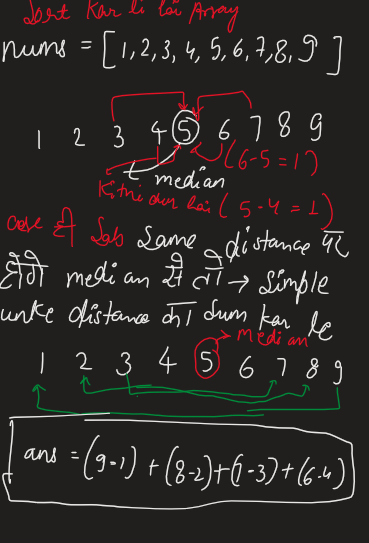 Sort Kar li hai Array
nums = [1,2,3,4,5,6,7,8,9]
1 2 3 4 5 6 7 8 9
(6-5=1)
median
Kitni dur hai (5-4=1)
Same distance पर
होंगे median से तो → Simple
unke distance का Sum kar le
median
1 2 3 4 5 6 7 8 9
ans = (9-1) + (8-2)+(7-3)+(6-4)